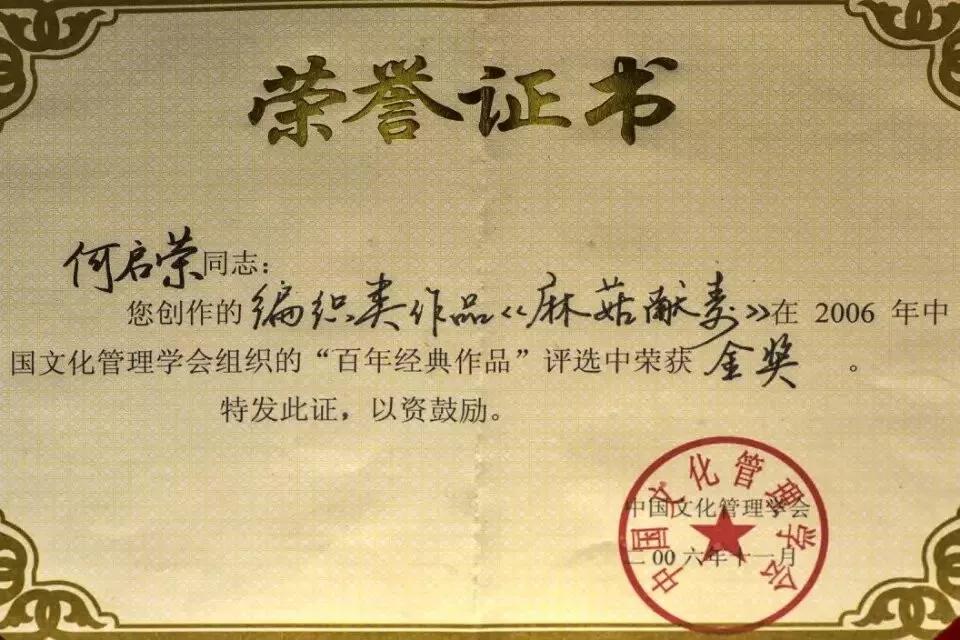 荣誉证书
何启荣同志：
您创作的编织类作品《麻菇献寿》在 2006 年中
国文化管理学会组织的“百年经典作品”评选中荣获 金奖 。
特发此证，以资鼓励。
中国文化管理学会
二00六年十一月
中国文化管理学会